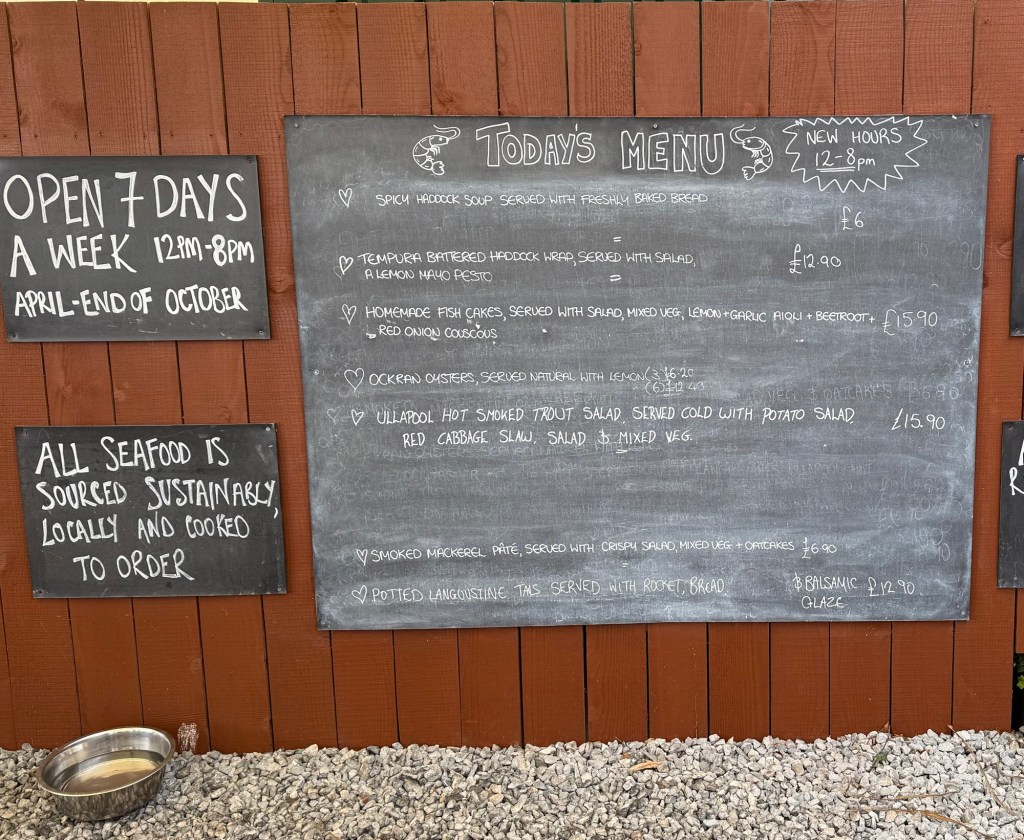 OPEN 7 DAYS
A WEEK 12PM-8PM
APRIL-END OF OCTOBER
ALL SEAFOOD IS
SOURCED SUSTAINABLY,
LOCALLY AND COOKED
TO ORDER
TODAY'S MENU
NEW HOURS
12-8pm
SPICY HADDOCK SOUP SERVED WITH FRESHLY BAKED BREAD
£6
TEMPURA BATTERED HADDOCK WRAP, SERVED WITH SALAD, £12.90
A LEMON MAYO PESTO
HOMEMADE FISH CAKES, SERVED WITH SALAD, MIXED VEG, LEMON+GARLIC AIOLI + BEETROOT+ £15.90
RED ONION COUSCOUS
OCKRAN OYSTERS, SERVED NATURAL WITH LEMON (3) £6.20
(6) £12.40
ULLAPOOL HOT SMOKED TROUT SALAD, SERVED COLD WITH POTATO SALAD, £15.90
RED CABBAGE SLAW, SALAD & MIXED VEG.
SMOKED MACKEREL PÂTÉ, SERVED WITH CRISPY SALAD, MIXED VEG + OATCAKES £6.90
POTTED LANGOUSTINE TAILS SERVED WITH ROCKET, BREAD & BALSAMIC £12.90
GLAZE